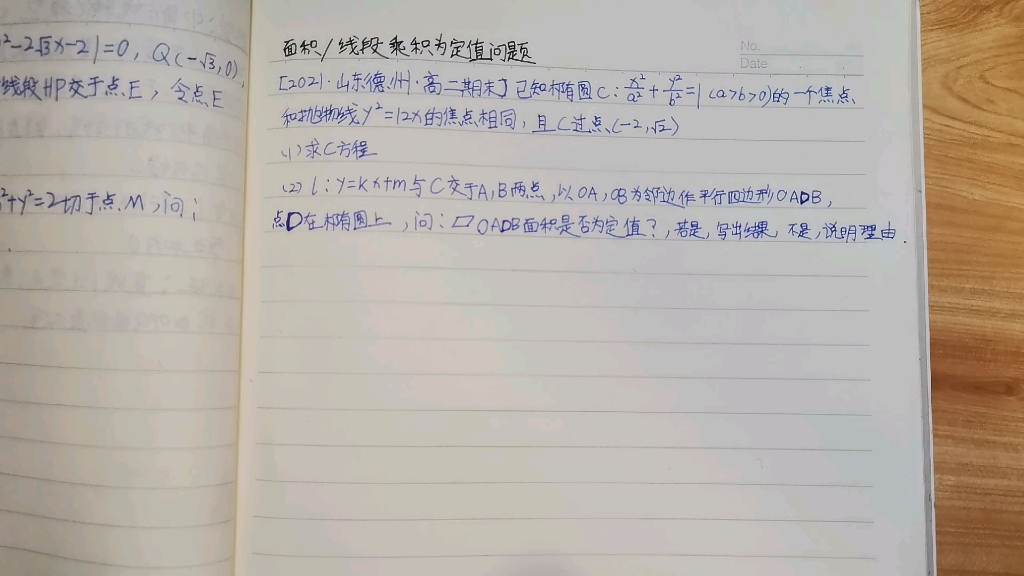 ²-2√3x-21=0, Q(-√3,0)
线段HP交于点E,令点E
²+y²=2切于点M,问:
面积/线段乘积为定值问题
No.
Date
[2021·山东德州·高二期末]已知椭圆C:x²/a²+y²/b²=1(a>b>0)的一个焦点
和抛物线y²=12x的焦点相同,且C过点(-2,√2)
(1)求C方程
(2) l:y=kx+m与C交于A,B两点,以OA,OB为邻边作平行四边形OADB,
点D在椭圆上,问:▱OADB面积是否为定值?,若是,写出结果,不是,说明理由.